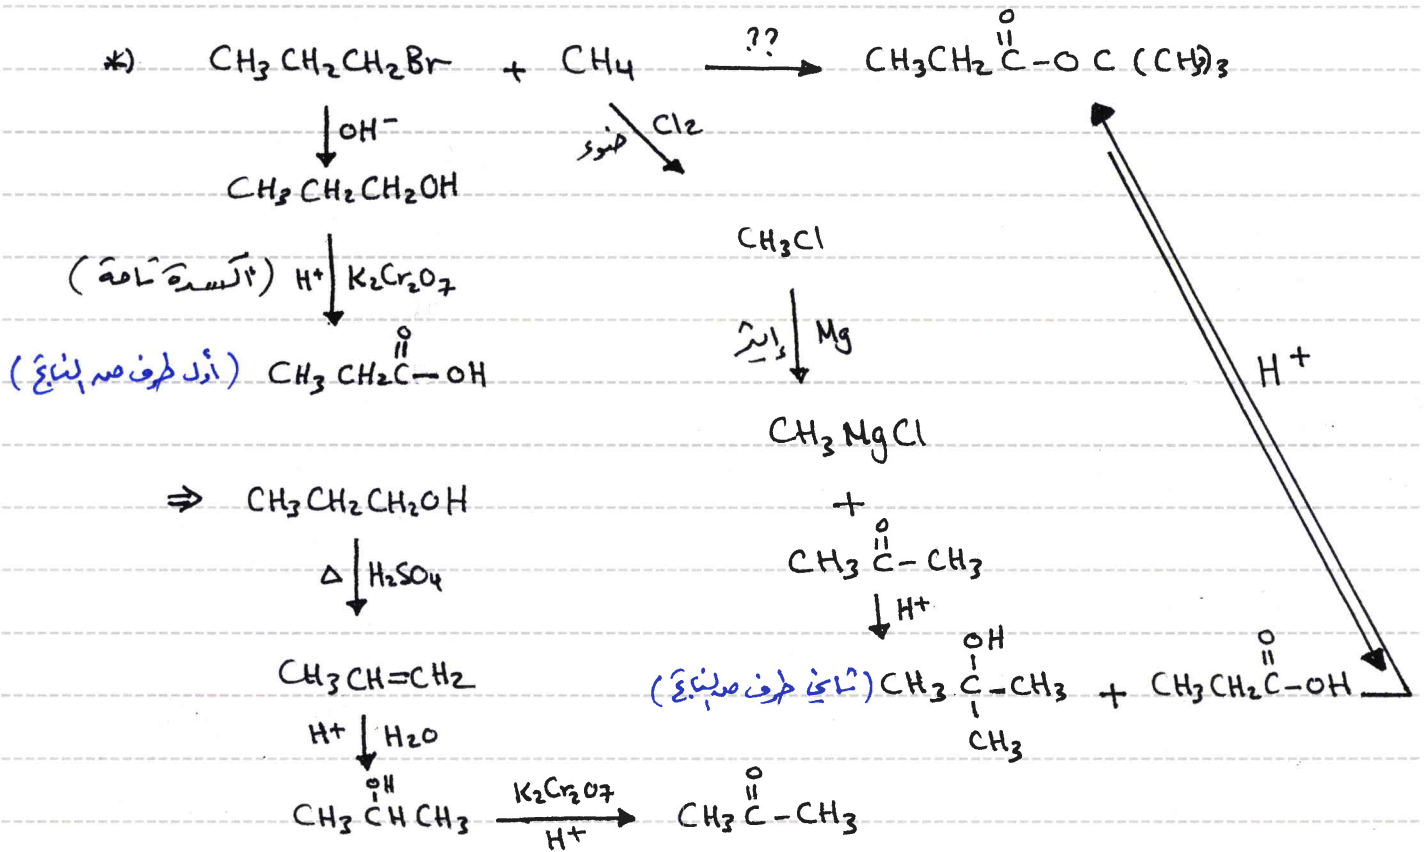 *) CH3CH2CH2Br + CH4 ?? CH3CH2C(=O)-O C (CH3)3
OH-
Cl2
ضوء
CH3CH2CH2OH
CH3Cl
(أكسدة تامة) H+ K2Cr2O7
إيثر Mg
H+
(أول طرف من الناتج) CH3CH2C(=O)-OH
CH3MgCl
+
⇒ CH3CH2CH2OH
CH3C(=O)-CH3
Δ H2SO4
H+
CH3CH=CH2
(ثاني طرف من الناتج) CH3C(OH)(CH3)-CH3 + CH3CH2C(=O)-OH
H+ H2O
CH3CH(OH)CH3 K2Cr2O7 H+ CH3C(=O)-CH3